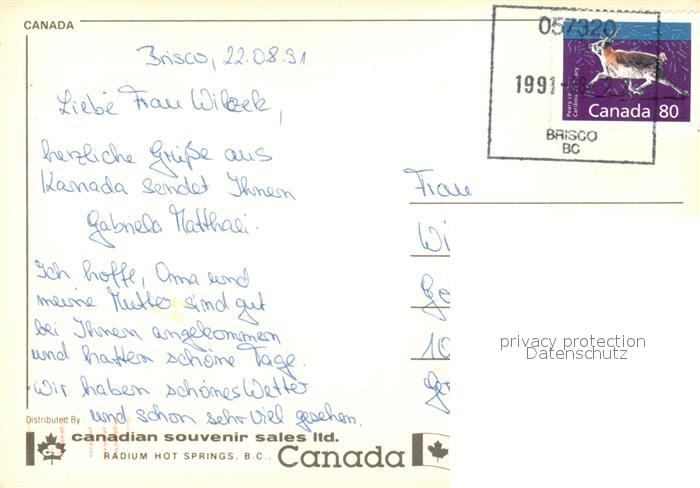 CANADA
Brisco, 22.08.91
Liebe Frau Wilczek,
herzliche Grüße aus
Kanada sendet Ihnen
Gabriela Matthaei.
Ich hoffe, Oma und
meine Mutter sind gut
bei Ihnen angekommen
und hatten schöne Tage.
Wir haben schönes Wetter
und schon sehr viel gesehen.
Distributed By
canadian souvenir sales ltd.
RADIUM HOT SPRINGS, B.C.,
Canada
057320
1991
BRISCO
BC
Peary caribou
Caribou de Peary
Canada 80
Frau
Wi
Ge
10
Ger
privacy protection
Datenschutz